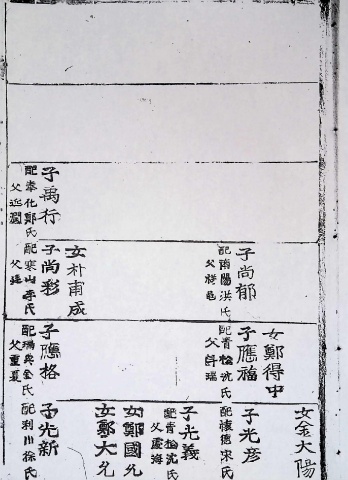 子尚郁
配南陽洪氏
子禹行
配奉化鄭氏
女朴甫成
子尚彩
配寒山李氏
父廷
女鄭得中
子應福
配青松沈氏
子應格
配瑞興金氏
父重夏
女金大陽
子光彦
配懷德宋氏
子光義
配青松沈氏
女鄭國允
女鄭大允
子光新
配利川徐氏